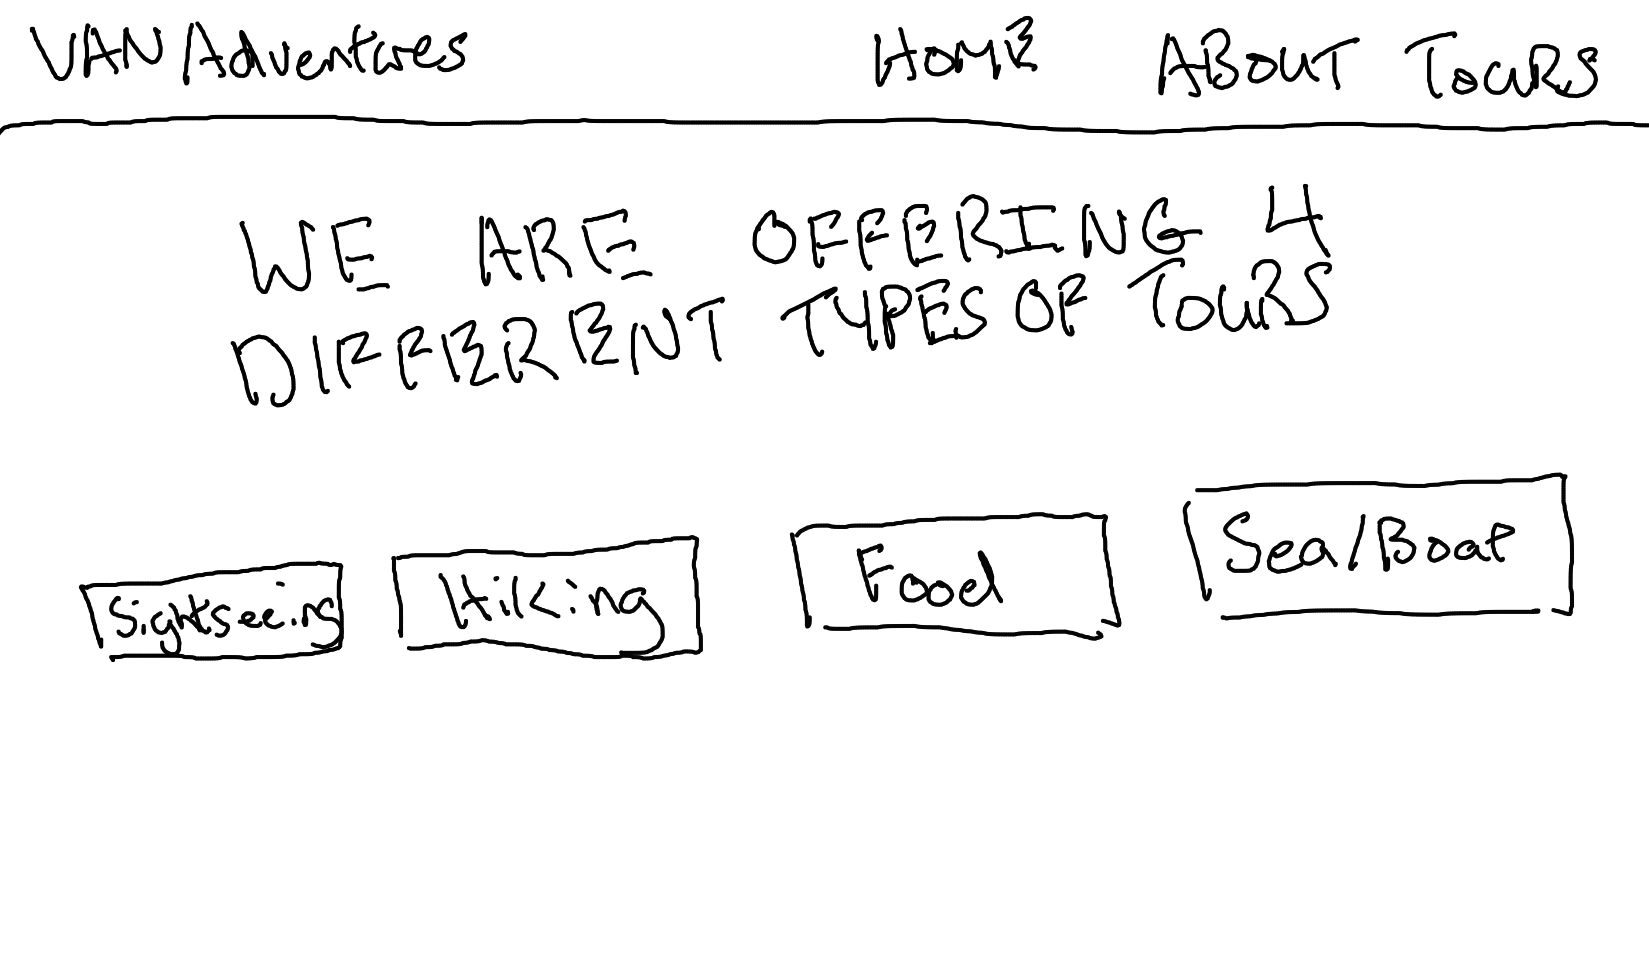 VAN Adventures
HOME ABOUT TOURS
WE ARE OFFERING 4
DIFFERENT TYPES OF TOURS
Sightseeing
Hiking
Food
Sea/Boat